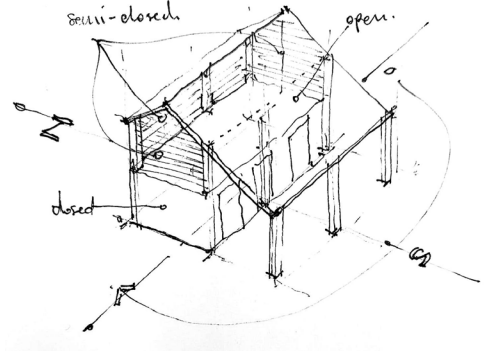 semi-closed
open.
N
closed
S